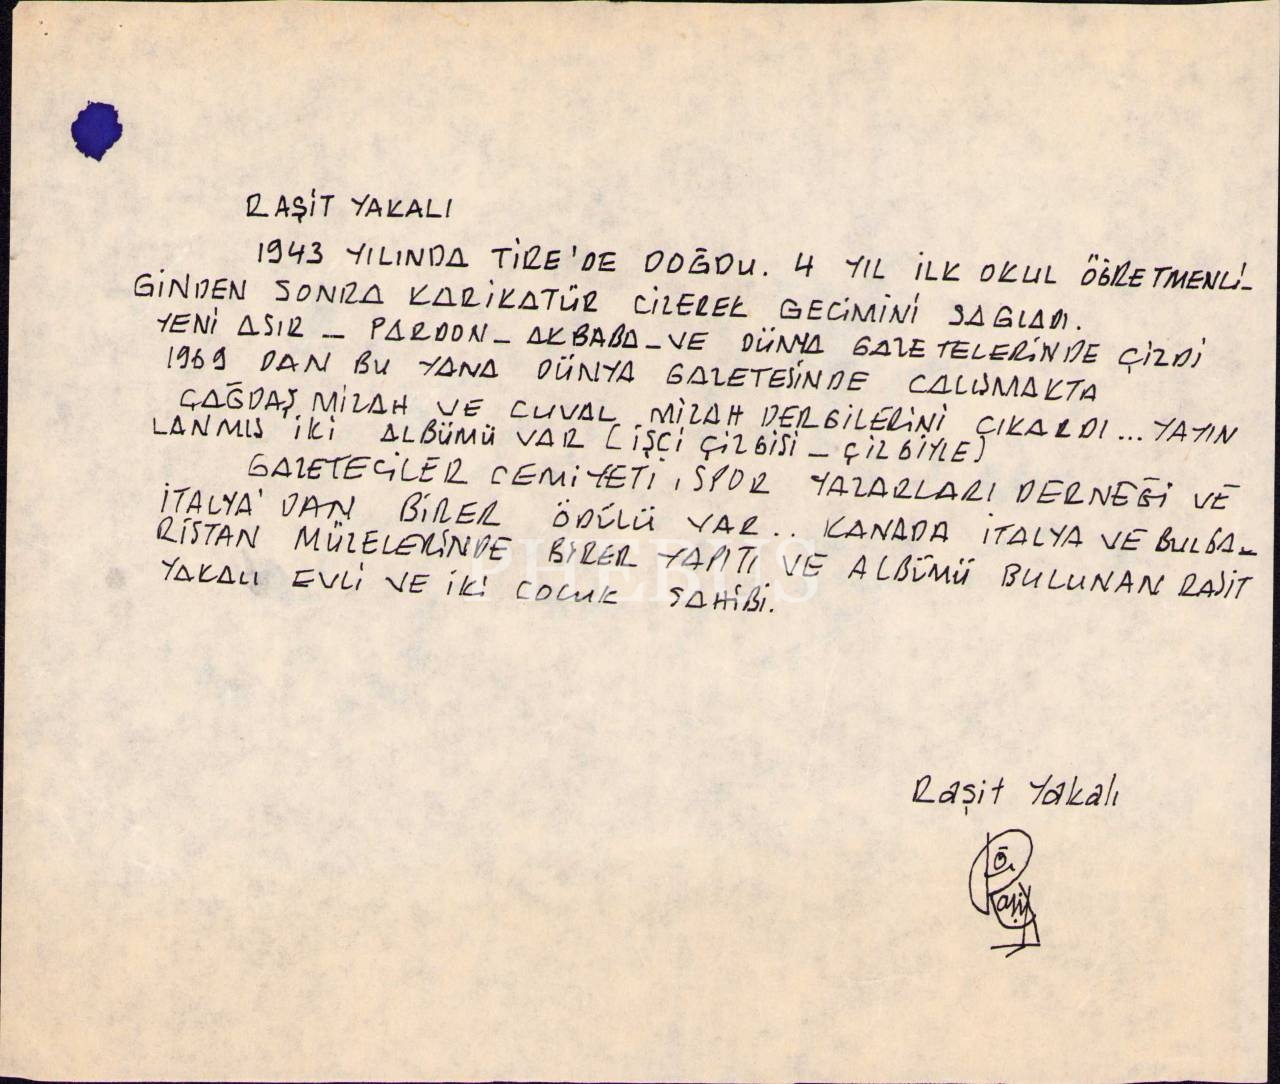 RAŞİT YAKALI
1943 YILINDA TİRE'DE DOĞDU. 4 YIL İLK OKUL ÖĞRETMENLİ-
ĞİNDEN SONRA KARİKATÜR CİZEREK GECİMİNİ SAGLADI.
YENİ ASIR - PARDON - AKBABA - VE DÜNYA GAZETELERİNDE ÇİZDİ
1969 DAN BU YANA DÜNYA GAZETESİNDE CALIŞMAKTA
ÇAĞDAŞ MİZAH VE CUVAL MİZAH DERGİLERİNİ ÇIKARDI... YAYIN
LANMIŞ İKİ ALBÜMÜ VAR (İŞÇİ ÇİZGİSİ - ÇİZGİYLE)
GAZETECİLER CEMİYETİ, SPOR YAZARLARI DERNEĞİ VE
İTALYA'DAN BİRER ÖDÜLÜ VAR.. KANADA İTALYA VE BULGA-
RİSTAN MÜZELERİNDE BİRER YAPITI VE ALBÜMÜ BULUNAN RAŞİT
YAKALI EVLİ VE İKİ COCUK SAHİBİ.
PHEBUS
Raşit Yakalı
Raşit